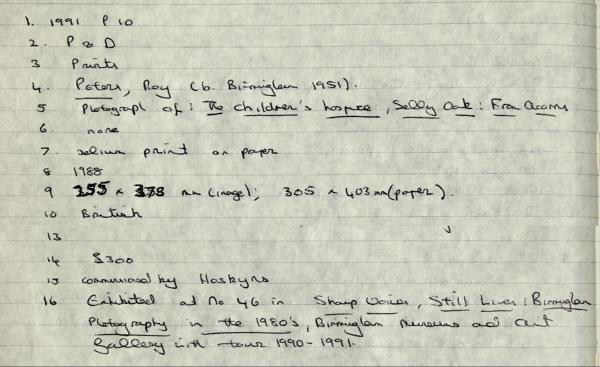 1. 1991 P 10
2. P & D
3 Prints
4. Peters, Roy (b. Birmingham 1951).
5 Photograph of: The Children's hospice, Selly Oak: Fran Acorns
6. none
7. selium print on paper
8 1988
9 355 x 378 mm (image); 305 x 403 mm (paper).
10 British
13
14 $300
15 commissioned by Hoskyns
16 Exhibited as no 46 in Sharp Voices, Still Lives: Birmingham
Photography in the 1980's, Birmingham Museums and Art
Gallery with tour 1990-1991.